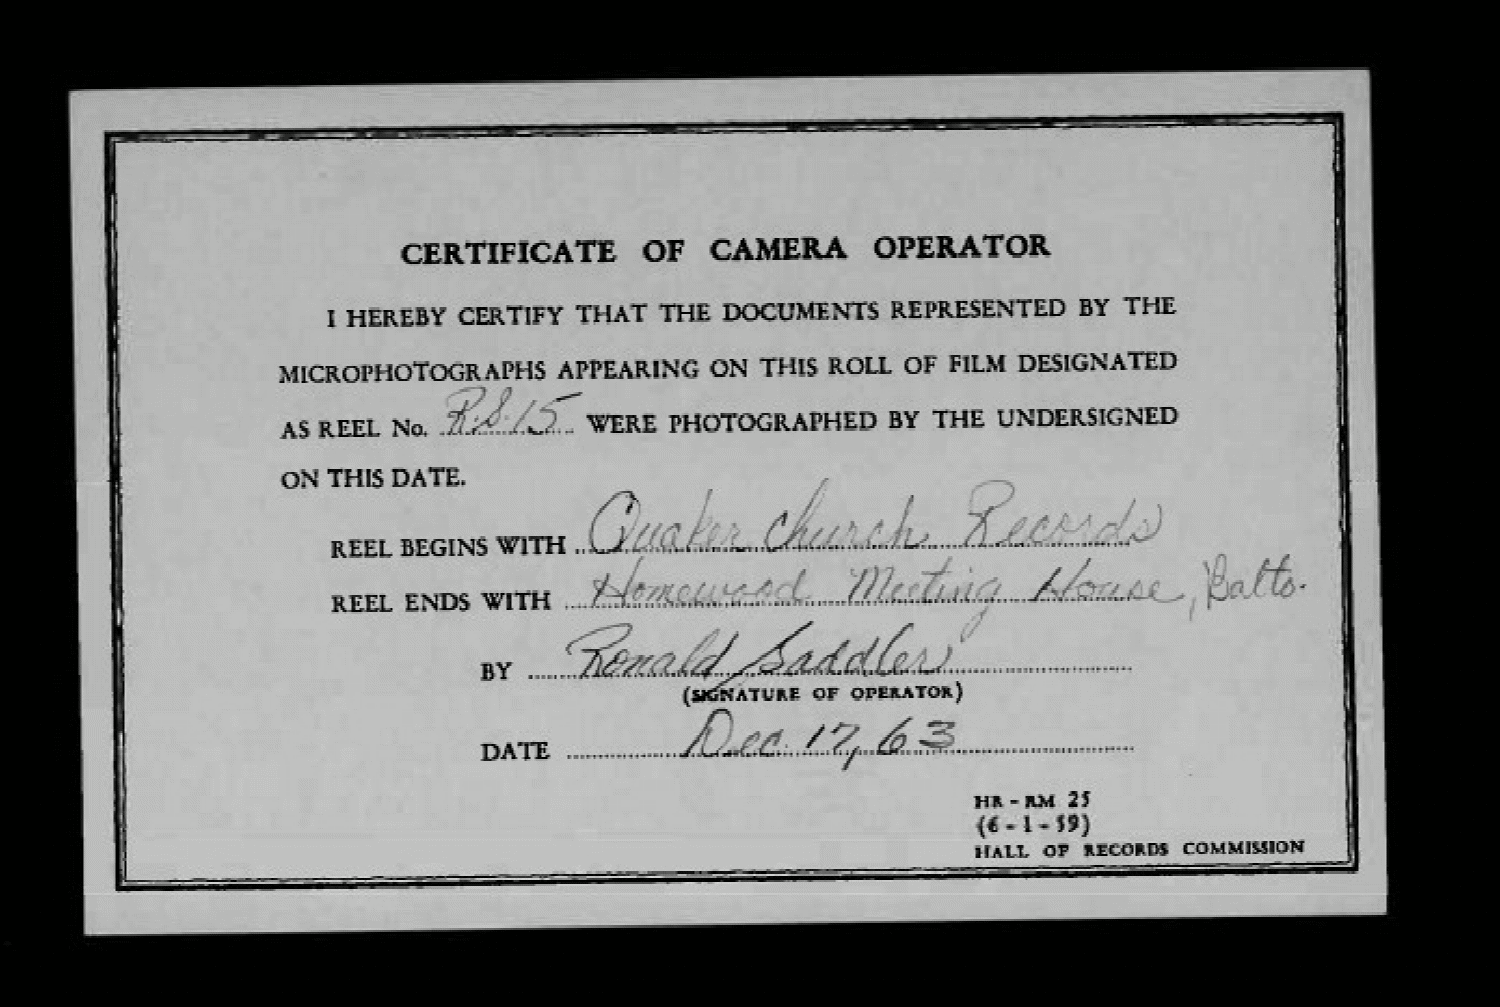 CERTIFICATE OF CAMERA OPERATOR
I HEREBY CERTIFY THAT THE DOCUMENTS REPRESENTED BY THE
MICROPHOTOGRAPHS APPEARING ON THIS ROLL OF FILM DESIGNATED
AS REEL No. R.S.15 WERE PHOTOGRAPHED BY THE UNDERSIGNED
ON THIS DATE.
REEL BEGINS WITH Quaker Church Records
REEL ENDS WITH Homewood Meeting House, Balto.
BY Ronald Saddler
(SIGNATURE OF OPERATOR)
DATE Dec. 17, 63
HR - RM 25
(6 - 1 - 59)
HALL OF RECORDS COMMISSION